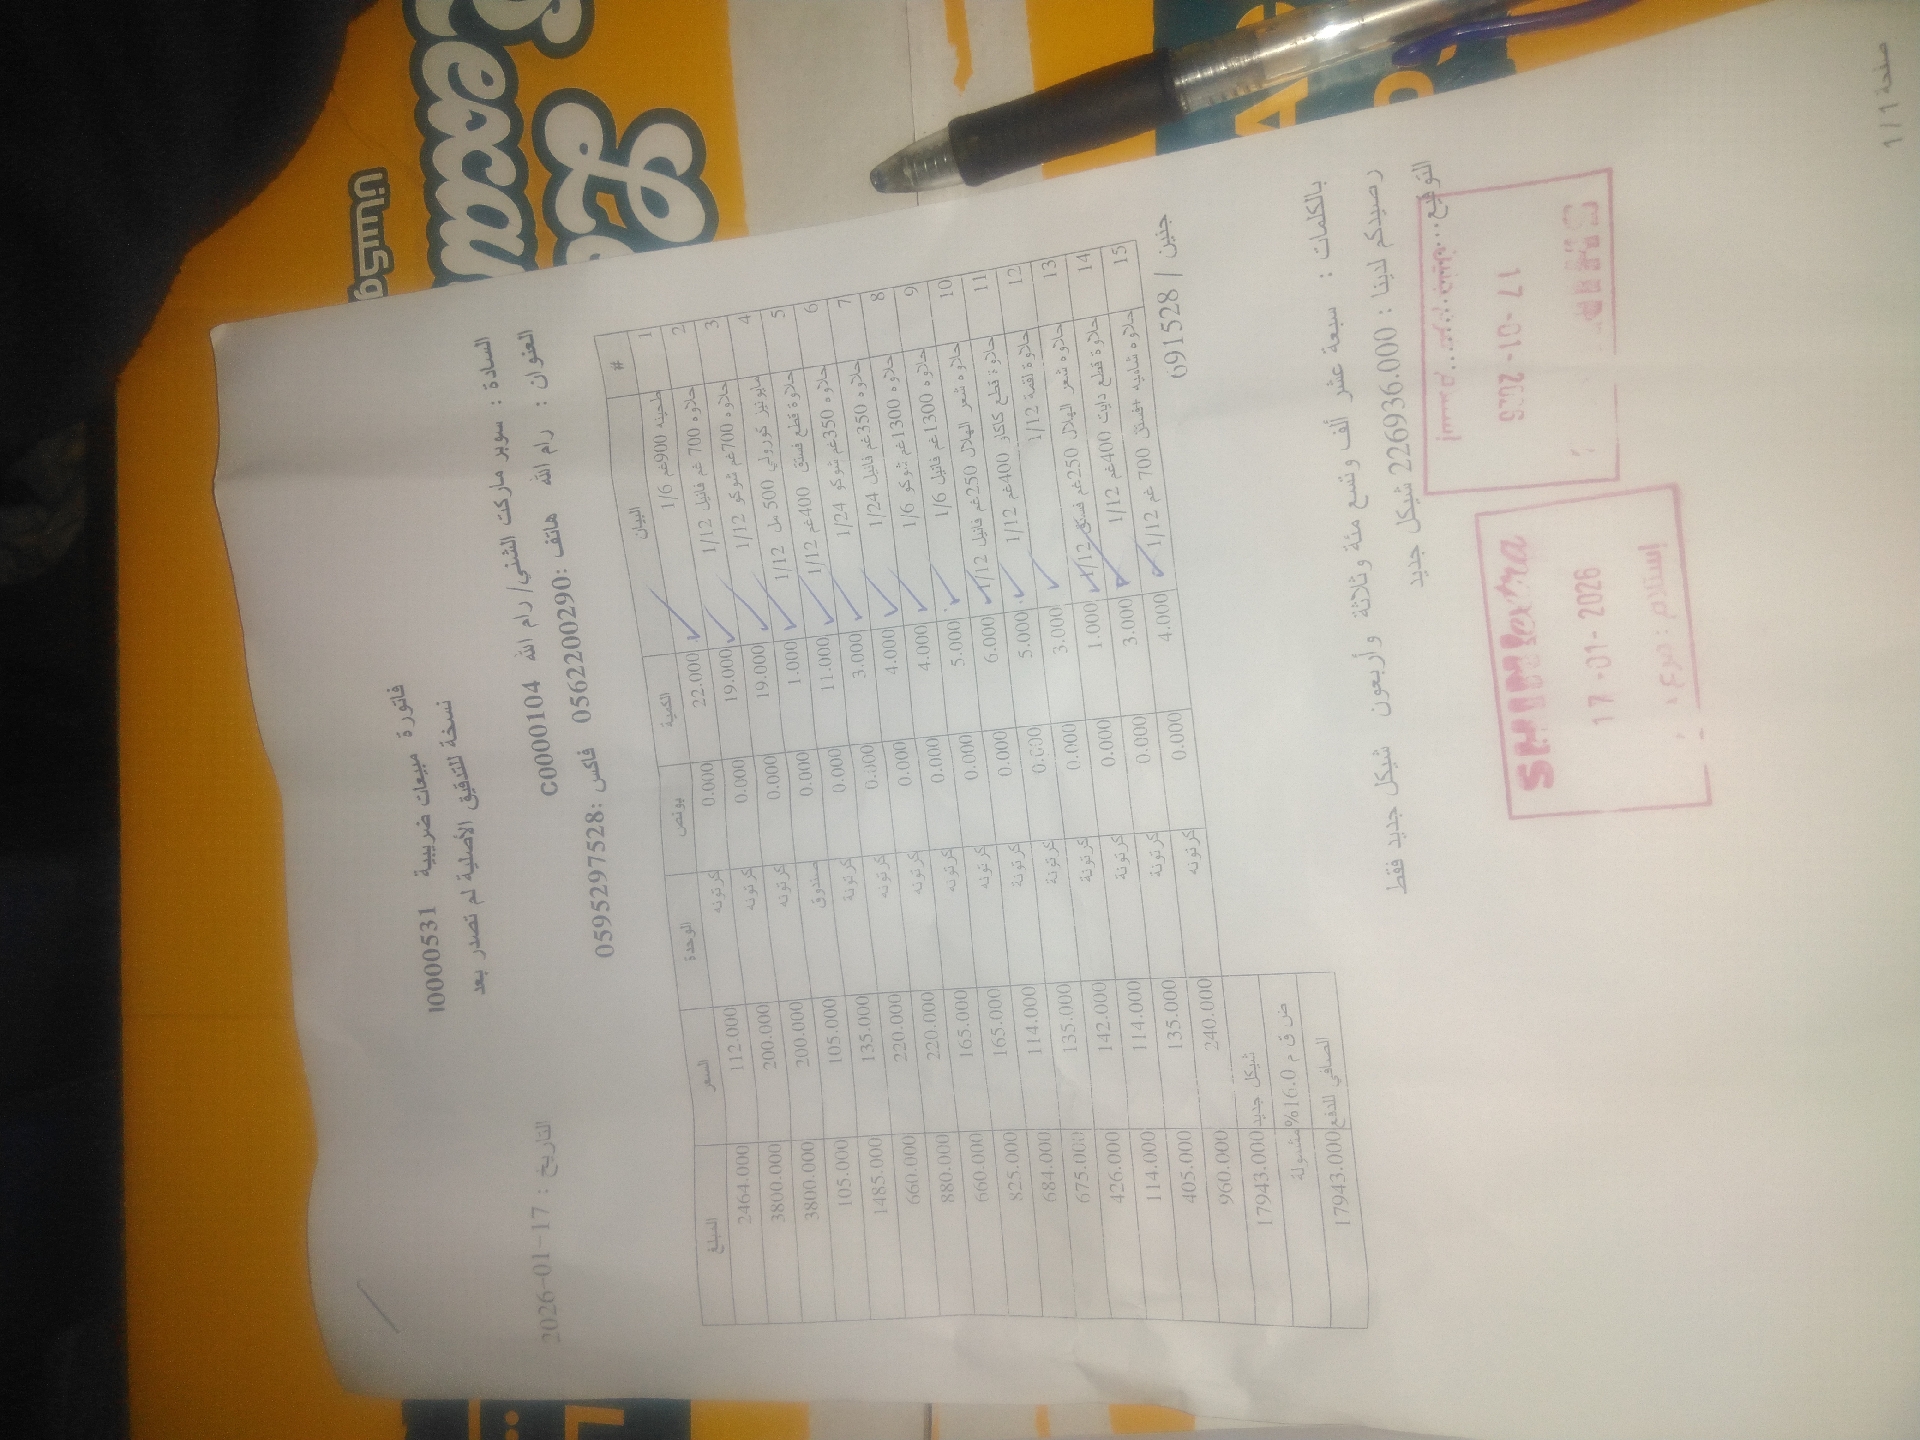 فاتورة مبيعات ضريبية I0000531
نسخة للتدقيق الأصلية لم تصدر بعد
السادة : سوبر ماركت الشني/ رام الله C0000104
التاريخ : 17-01-2026
العنوان : رام الله هاتف :0562200290 فاكس :0595297528
# البيان الكمية بونص الوحدة السعر المبلغ
1 طحينه 900غم 1/6 22.000 0.000 كرتونه 112.000 2464.000
2 حلاوه 700 غم فانيل 1/12 19.000 0.000 كرتونه 200.000 3800.000
3 حلاوه 700غم شوكو 1/12 19.000 0.000 كرتونه 200.000 3800.000
4 مايونيز كورولي 500 مل 1/12 1.000 0.000 صندوق 105.000 105.000
5 حلاوة قطع فستق 400غم 1/12 11.000 0.000 كرتونة 135.000 1485.000
6 حلاوه 350غم شوكو 1/24 3.000 0.000 كرتونه 220.000 660.000
7 حلاوه 350غم فانيل 1/24 4.000 0.000 كرتونه 220.000 880.000
8 حلاوه 1300غم شوكو 1/6 4.000 0.000 كرتونه 165.000 660.000
9 حلاوه 1300غم فانيل 1/6 5.000 0.000 كرتونه 165.000 825.000
10 حلاوه شعر الهلال 250غم فانيل 1/12 6.000 0.000 كرتونة 114.000 684.000
11 حلاوة قطع كاكاو 400غم 1/12 5.000 0.000 كرتونة 135.000 675.000
12 حلاوة لقمة 1/12 3.000 0.000 كرتونة 142.000 426.000
13 حلاوه شعر الهلال 250غم فستق 1/12 1.000 0.000 كرتونة 114.000 114.000
14 حلاوة قطع دايت 400غم 1/12 3.000 0.000 كرتونة 135.000 405.000
15 حلاوه شاميه +فستق 700 غم 1/12 4.000 0.000 كرتونه 240.000 960.000
شيكل جديد 17943.000
ض ق م 16.0% مشمولة
الصافي للدفع 17943.000
جنين / 691528
بالكلمات : سبعة عشر ألف وتسع مئة وثلاثة وأربعون شيكل جديد فقط
رصيدكم لدينا : 226936.000 شيكل جديد
التوقيع
17-01-2026
17-01-2026
صفحة 1/1